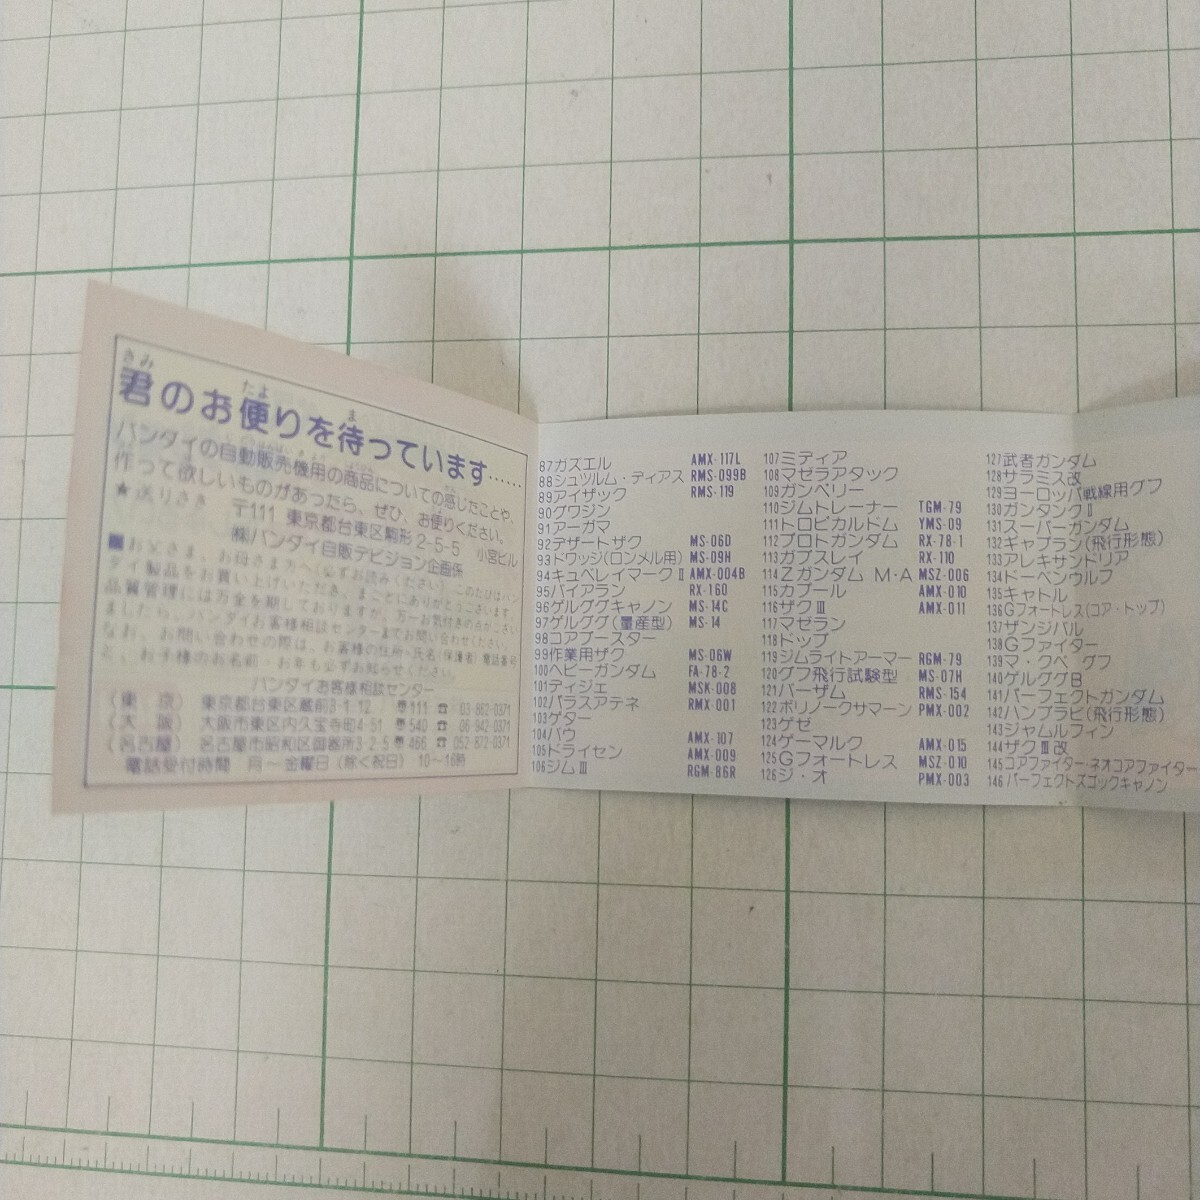 きみ
たよ
ま
君のお便りを待っています……
バンダイの自動販売機用の商品についての感じたことや、
作って欲しいものがあったら、ぜひ、お便りください。
★送りさき 〒111 東京都台東区駒形2-5-5 小宮ビル
㈱バンダイ自販テビジョン企画係
■お父さま、お母さま方へ(必ずお読みください)このたびはバン
ダイ製品をお買い上げいただき、まことにありがとうございます。
品質管理には万全を期しておりますが、万一お気付きの点がござい
ましたら、バンダイお客様相談センターまでお問い合わせください。
なお、お問い合わせの際は、お客様の住所・氏名(保護者)電話番号
と、お子様のお名前・お年も必ずお知らせください。
バンダイお客様相談センター
(東 京) 東京都台東区蔵前3-1-12 〠111 ☎ 03-862-0371
(大 阪) 大阪市東区内久宝寺町4-51 〠540 ☎ 06-942-0371
(名古屋) 名古屋市昭和区御器所3-2-5 〠466 ☎ 052-872-0371
電話受付時間 月〜金曜日(除く祝日) 10〜16時
87ガズエル AMX-117L
88シュツルム・ディアス RMS-099B
89アイザック RMS-119
90グワジン
91アーガマ
92デザートザク MS-06D
93ドワッジ(ロンメル用) MS-09H
94キュベレイマークⅡ AMX-004B
95バイアラン RX-160
96ゲルググキャノン MS-14C
97ゲルググ(量産型) MS-14
98コアブースター
99作業用ザク MS-06W
100ヘビーガンダム FA-78-2
101ディジェ MSK-008
102パラスアテネ RMX-001
103ゲター
104バウ AMX-107
105ドライセン AMX-009
106ジムⅢ RGM-86R
107ミディア
108マゼラアタック
109ガンペリー
110ジムトレーナー TGM-79
111トロピカルドム YMS-09
112プロトガンダム RX-78-1
113ガブスレイ RX-110
114Zガンダム M・A MSZ-006
115カプール AMX-010
116ザクⅢ AMX-011
117マゼラン
118ドップ
119ジムライトアーマー RGM-79
120グフ飛行試験型 MS-07H
121バーザム RMS-154
122ボリノークサマーン PMX-002
123ゲゼ
124ゲーマルク AMX-015
125Gフォートレス MSZ-010
126ジ・オ PMX-003
127武者ガンダム
128サラミス改
129ヨーロッパ戦線用グフ
130ガンタンクⅡ
131スーパーガンダム
132ギャプラン(飛行形態)
133アレキサンドリア
134ドーベンウルフ
135キャトル
136Gフォートレス(コア・トップ)
137ザンジバル
138Gファイター
139マ・クベ グフ
140ゲルググB
141パーフェクトガンダム
142ハンブラビ(飛行形態)
143ジャムルフィン
144ザクⅢ改
145コアファイター・ネオコアファイター
146パーフェクトズゴックキャノン